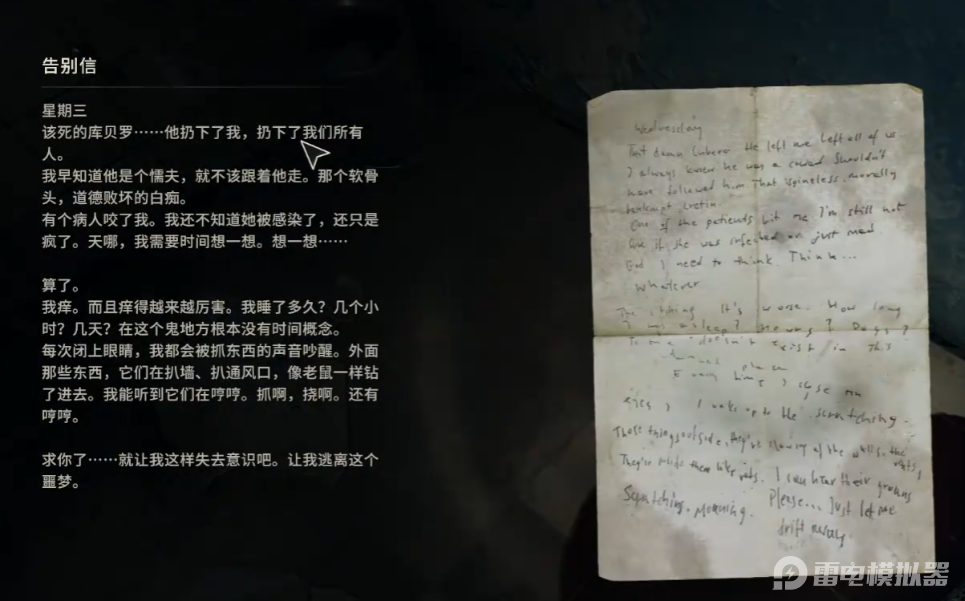 告别信
星期三
该死的库贝罗……他扔下了我，扔下了我们所有
人。
我早知道他是个懦夫，就不该跟着他走。那个软骨
头，道德败坏的白痴。
有个病人咬了我。我还不知道她被感染了，还只是
疯了。天哪，我需要时间想一想。想一想……
算了。
我痒。而且痒得越来越厉害。我睡了多久？几个小
时？几天？在这个鬼地方根本没有时间概念。
每次闭上眼睛，我都会被抓东西的声音吵醒。外面
那些东西，它们在扒墙、扒通风口，像老鼠一样钻
了进去。我能听到它们在哼哼。抓啊，挠啊。还有
哼哼。
求你了……就让我这样失去意识吧。让我逃离这个
噩梦。
Wednesday
That damn Lubero He left me Left all of us
I always knew he was a coward Shouldn't
have followed him That spineless, morally
bankrupt cretin
One of the patients bit me I'm still not
sure if she was infected or just mad.
God I need to think. Think...
Whatever
The itching It's worse. How long
I was asleep? Hours? Days?
Time doesn't exist in this
place
Every time I close my
eyes, I wake up to the scratching.
Those things outside, they're clawing at the walls, the vents,
They're inside them like rats. I can hear their groans
Scratching. Moaning. Please... Just let me
drift away.
雷电模拟器